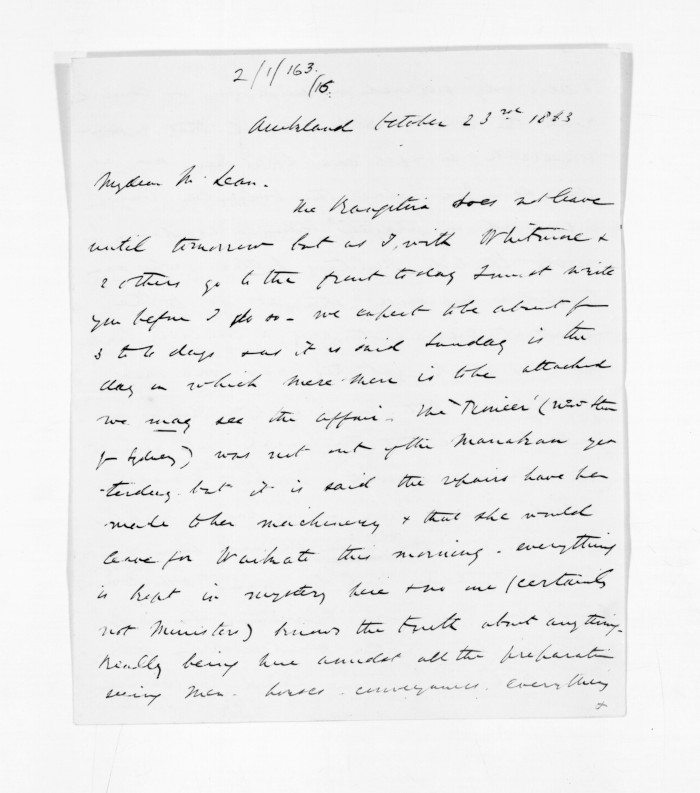 2/1/163.
/16.
Auckland October 23rd 1863
My dear McLean.
The Rangitira does not leave
until tomorrow but as I, with Whitmore &
2 others go to the front today I must write
you before I do so - we expect to be absent for
3 to 6 days & as it is said Sunday is the
day on which Mere-mere is to be attacked
we may see the affair. The 'Pioneer' (new Stmr
fr Sydney) was not out of the Manakau yes
-terday. but it is said the repairs have been
made to her machinery & that she would
leave for Waikato this morning - everything
is kept in mystery here & no one (certainly
not Ministers) knows the truth about anything.
Really being here amidst all the preparation
seeing men - horses - conveyances. everything
&